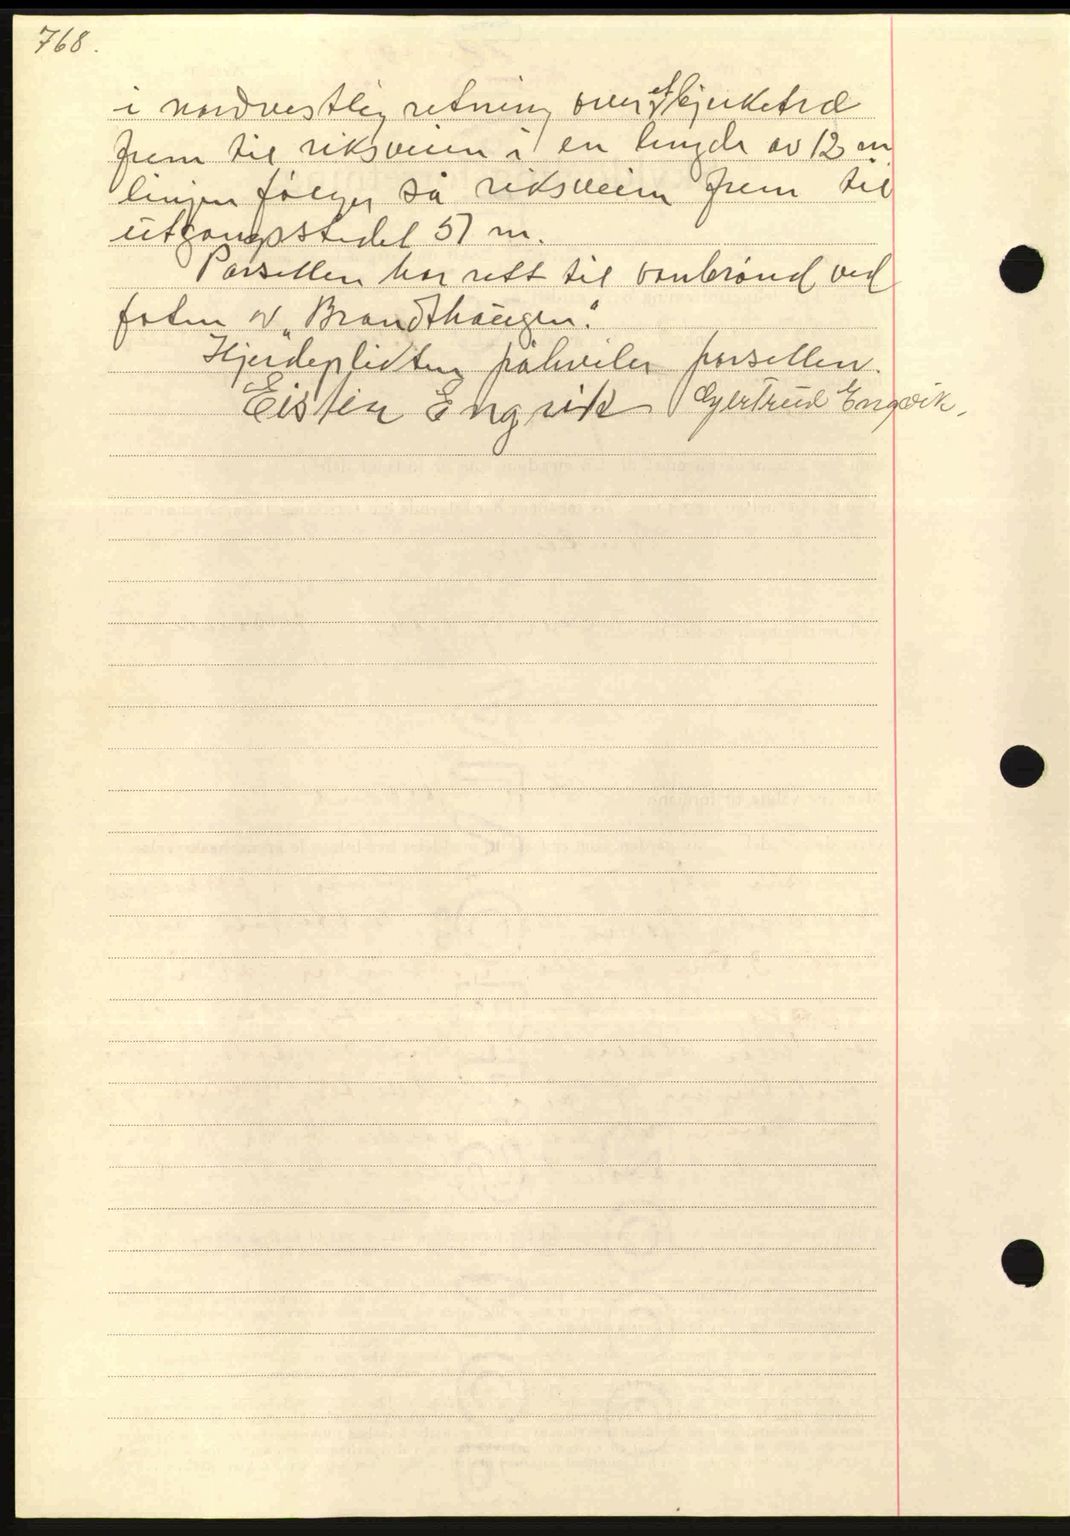 768.
i nordvestlig retning over et bjerketræ
frem til riksveien i en lengde av 12 m
linjen følger så riksveien frem til
utgangsstedet 57 m.
Parsellen har rett til vanbrønd ved
foten av "Brandthaugen".
Hjerdeplikten påhviler parsellen.
Eistein Engvik Gjertrud Engvik.